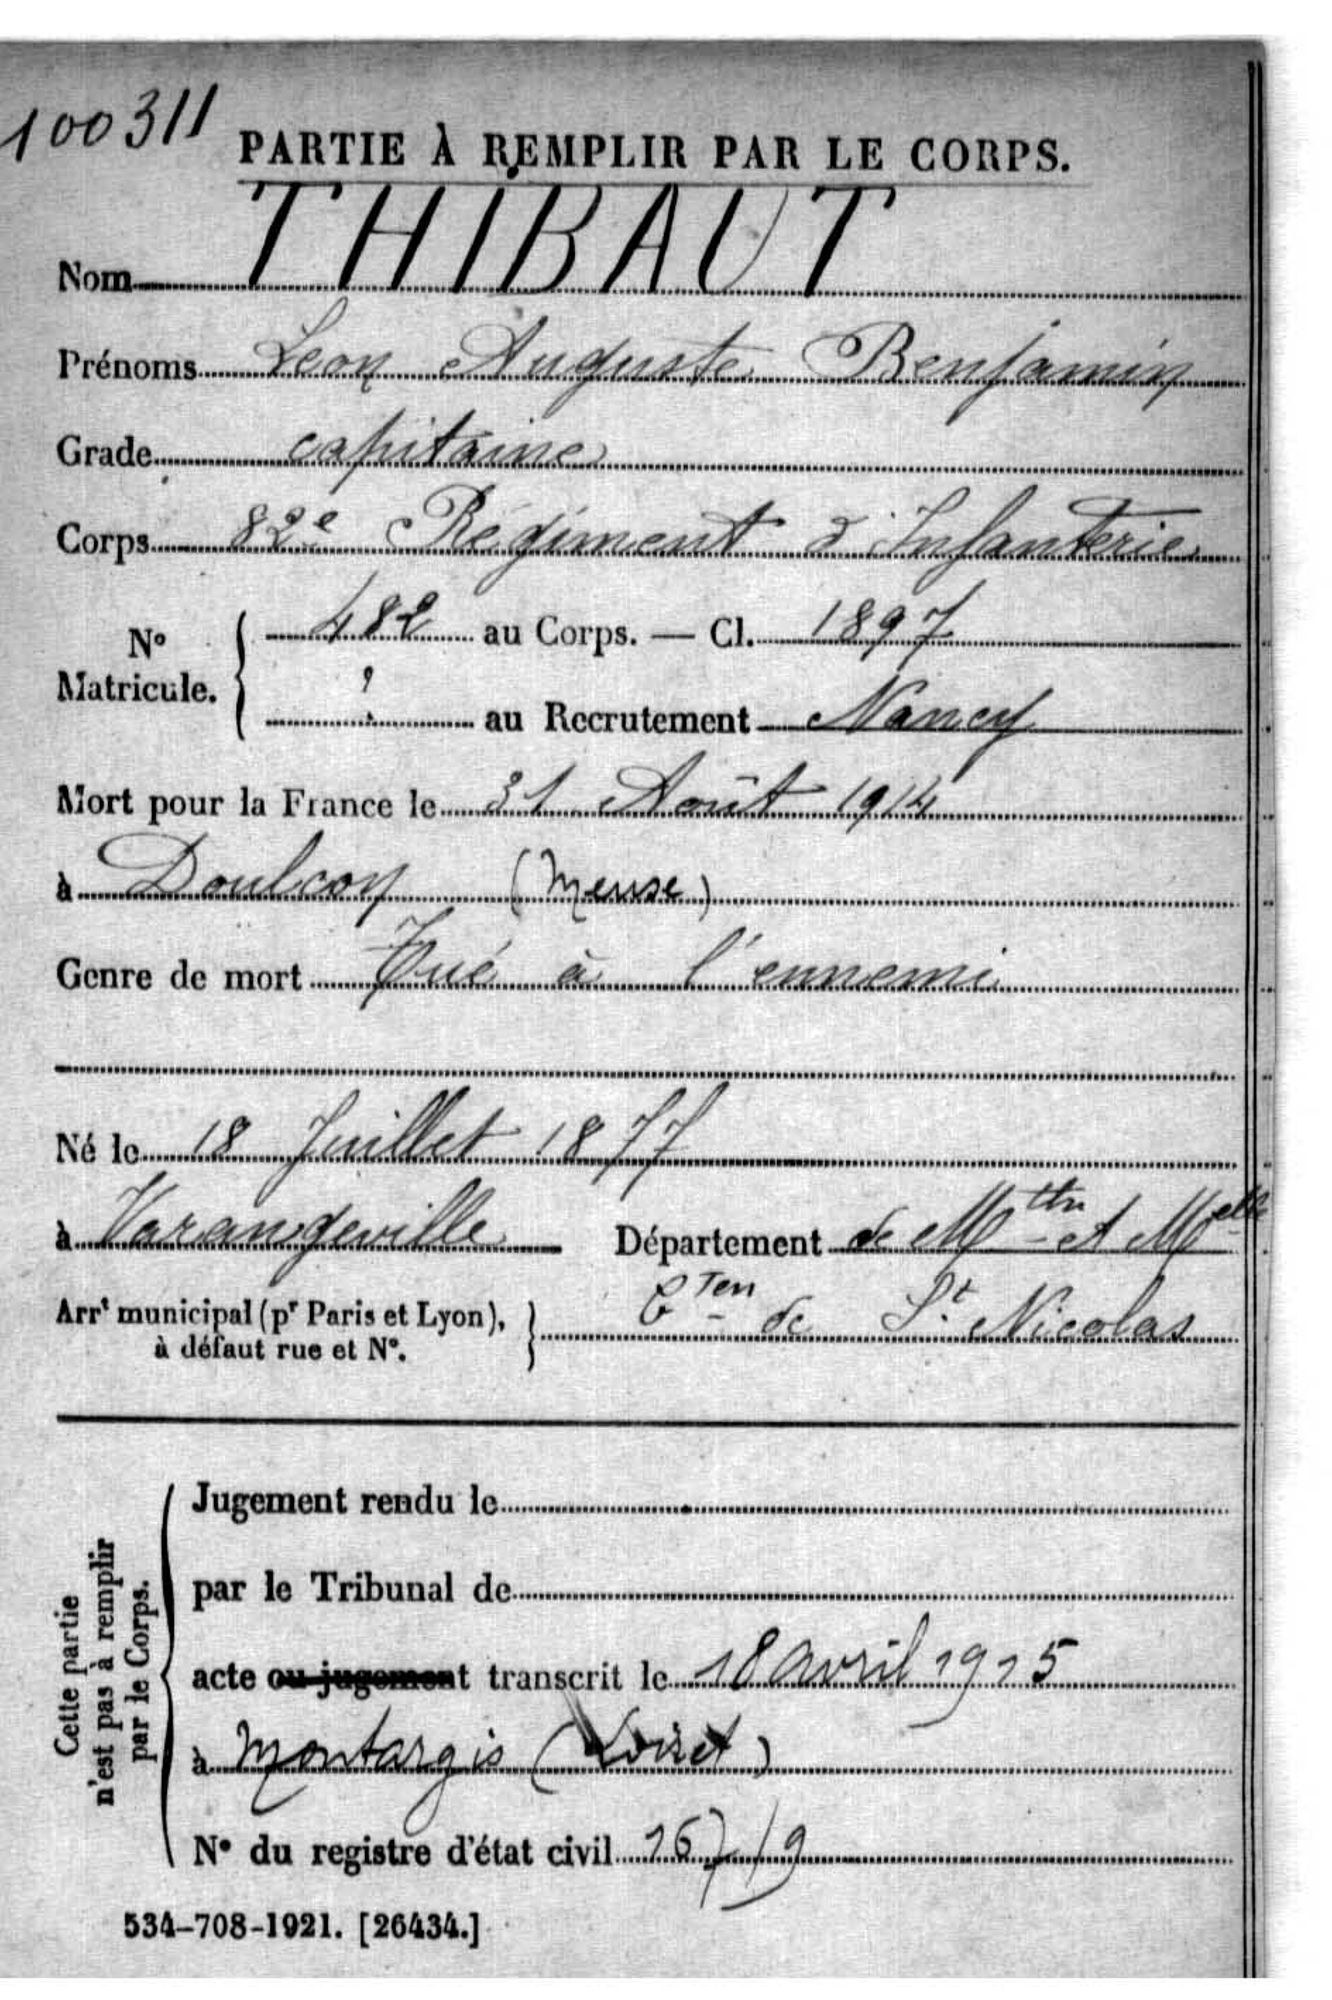 100311
PARTIE À REMPLIR PAR LE CORPS.
Nom THIBAUT
Prénoms Léon Auguste Benjamin
Grade capitaine
Corps 82e Régiment d'Infanterie
N° Matricule. { 482 au Corps. — Cl. 1897
? au Recrutement Nancy
Mort pour la France le 31 Août 1914
à Doulcon (Meuse)
Genre de mort Tué à l'ennemi
Né le 18 Juillet 1877
à Varangeville Département de Mthe et Melle
Arrt municipal (pr Paris et Lyon), à défaut rue et N°. } Cton de St. Nicolas
Cette partie n'est pas à remplir par le Corps.
Jugement rendu le
par le Tribunal de
acte ou jugement transcrit le 18 avril 1915
à Montargis (Loiret)
N° du registre d'état civil 167/19
534-708-1921. [26434.]